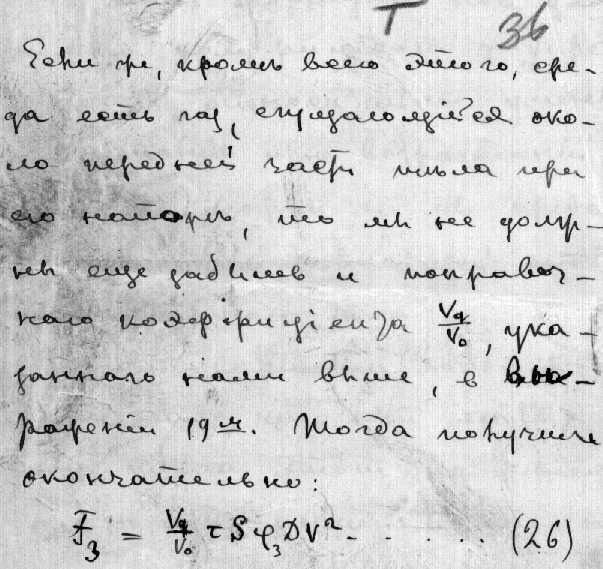 Т 36
Если же, кромѣ всего этого, сре-
да есть газ, сгущающійся око-
ло передней части тѣла при
его напорѣ, то мы не долж-
ны еще забывать и поправоч-
наго коэффиціента V₉/V₀, ука-
заннаго нами выше, в вы-
раженіи 19м. Тогда получим
окончательно:
F₃ = V₉/V₀ τ S φ₃ D V² - . . . . . (26)